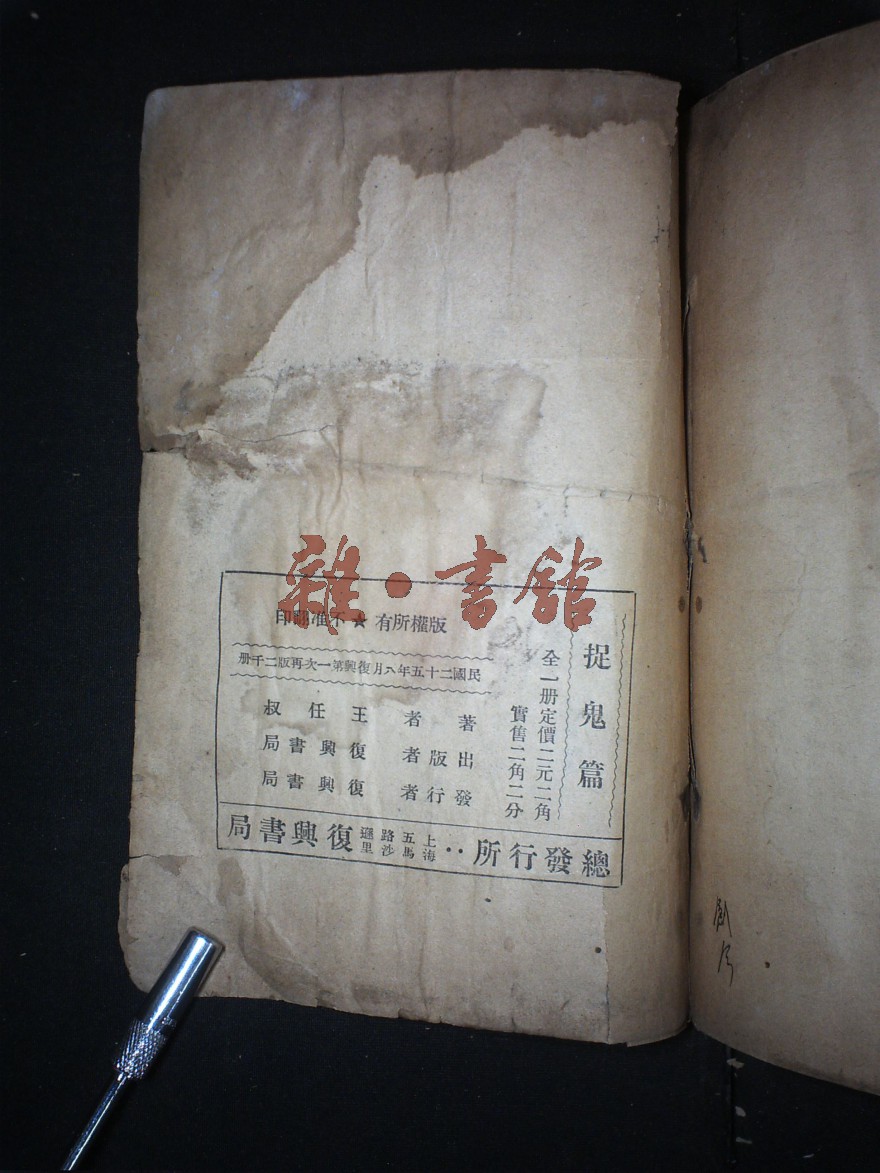 雜·書館
捉鬼篇
全一册定價二元二角
實售二角二分
版權所有★不准翻印
民國二十五年八月復興第一次再版二千册
著者 王任叔
出版者 復興書局
發行者 復興書局
總發行所：上海五馬路沙遜里復興書局